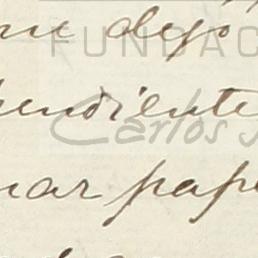 me dejó
FUNDAC
pendiente
Carlos
nar pape